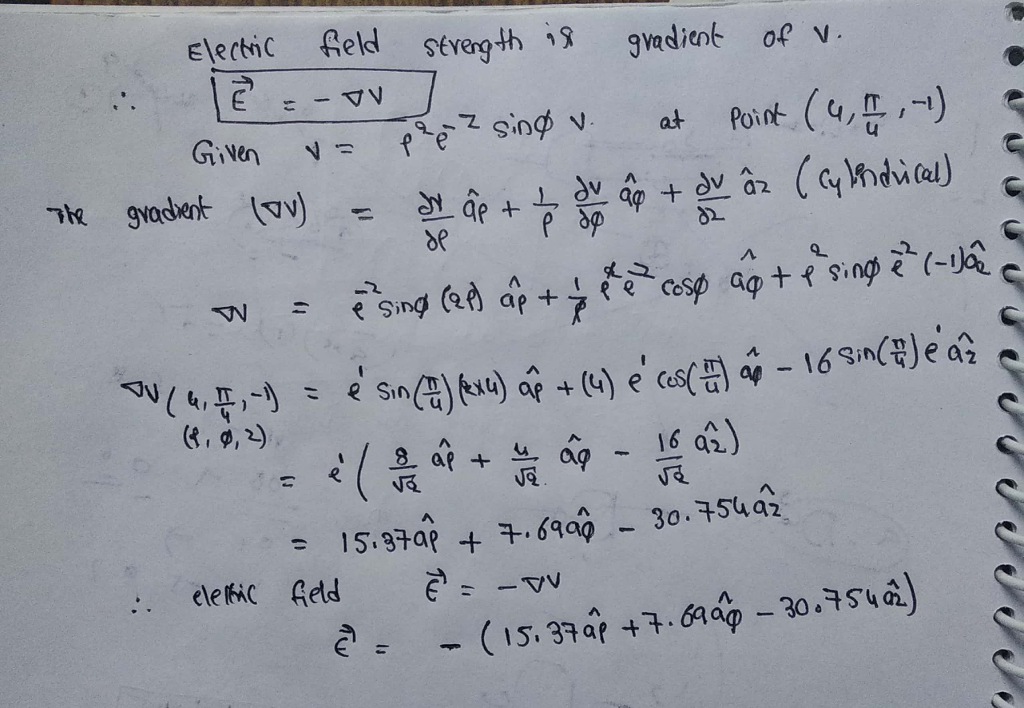 Electric field strength is gradient of V.
∴ E⃗ = -∇V
Given V = ρ²e^-z sinφ V. at point (4, π/4, -1)
The gradient (∇V) = ∂V/∂ρ âρ + 1/ρ ∂V/∂φ âφ + ∂V/∂z âz (Cylindrical)
∇V = e^-z sinφ (2ρ) âρ + 1/ρ ρ² e^-z cosφ âφ + ρ² sinφ e^-z (-1) âz
∇V(4, π/4, -1) = e¹ sin(π/4) (2×4) âρ + (4) e¹ cos(π/4) âφ - 16 sin(π/4) e¹ âz
(ρ, φ, z)
= e¹ ( 8/√2 âρ + 4/√2 âφ - 16/√2 âz )
= 15.37 âρ + 7.69 âφ - 30.754 âz
∴ electric field E⃗ = -∇V
E⃗ = - (15.37 âρ + 7.69 âφ - 30.754 âz)